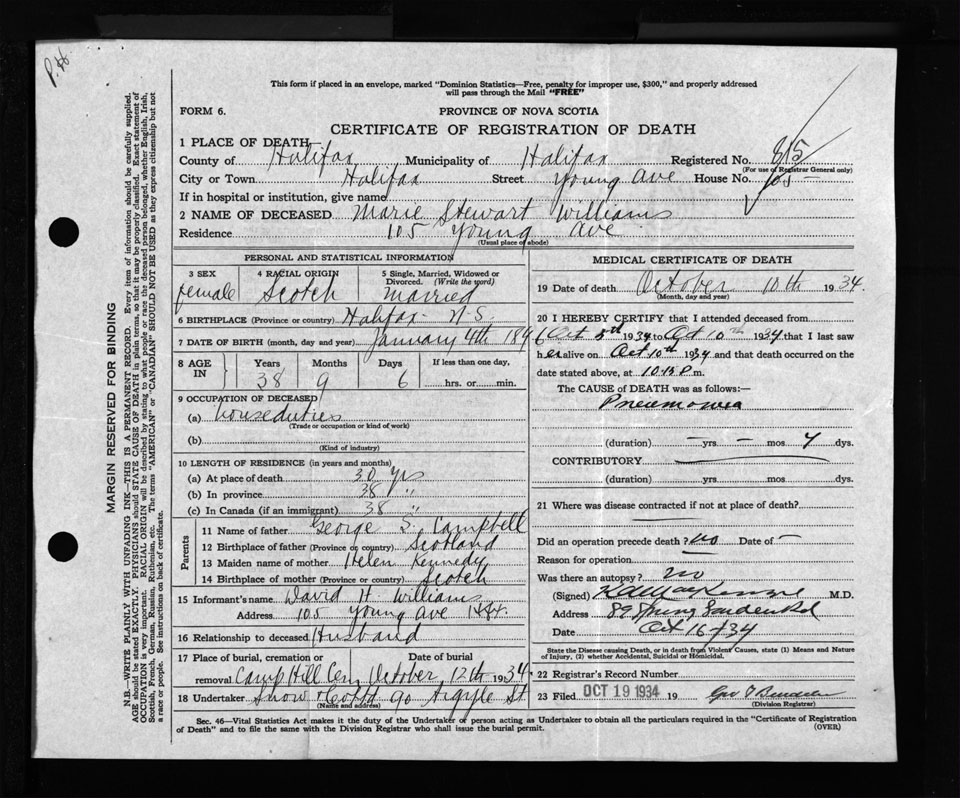 P.H.
This form if placed in an envelope, marked "Dominion Statistics—Free, penalty for improper use, $300," and properly addressed
will pass through the Mail "FREE"
FORM 6.
PROVINCE OF NOVA SCOTIA
CERTIFICATE OF REGISTRATION OF DEATH
1 PLACE OF DEATH
County of Halifax Municipality of Halifax Registered No. 815
(For use of Registrar General only)
City or Town Halifax Street Young Ave House No. 105
If in hospital or institution, give name
2 NAME OF DECEASED Marie Stewart Williams
Residence 105 Young Ave
(Usual place of abode)
PERSONAL AND STATISTICAL INFORMATION
3 SEX 4 RACIAL ORIGIN 5 Single, Married, Widowed or Divorced. (Write the word)
female Scotch Married
6 BIRTHPLACE (Province or country) Halifax N.S.
7 DATE OF BIRTH (month, day and year) January 4th 1896
8 AGE IN Years Months Days If less than one day,
38 9 6 hrs. or min.
9 OCCUPATION OF DECEASED
(a) house duties
(Trade or occupation or kind of work)
(b)
(Kind of industry)
10 LENGTH OF RESIDENCE (in years and months)
(a) At place of death 30 yrs
(b) In province 38 "
(c) In Canada (if an immigrant) 38 "
Parents
11 Name of father George S. Campbell
12 Birthplace of father (Province or country) Scotland
13 Maiden name of mother Helen Kennedy
14 Birthplace of mother (Province or country) Scotch
15 Informant's name David H Williams
Address 105 Young Ave
16 Relationship to deceased Husband
17 Place of burial, cremation or removal Date of burial
Camp Hill Cem October 12th 1934
18 Undertaker Snow 90 Argyle St
(Name and address)
MEDICAL CERTIFICATE OF DEATH
19 Date of death October 10th 1934.
(Month, day and year)
20 I HEREBY CERTIFY that I attended deceased from
Oct 1934 to Oct 10th 1934 that I last saw
her alive on Oct 10th 1934 and that death occurred on
date stated above, at P m.
The CAUSE OF DEATH was as follows:—
Pneumonia
(duration) — yrs — mos dys.
CONTRIBUTORY
(duration) yrs. mos. dys.
21 Where was disease contracted if not at place of death?
Did an operation precede death? no Date of —
Reason for operation
Was there an autopsy? no
(Signed) M.D.
Address 89 Spring Garden Rd
Date Oct 16/34
State the Disease causing Death, or in death from Violent Causes, state (1) Means and Nature
of Injury, (2) whether Accidental, Suicidal or Homicidal.
22 Registrar's Record Number
23 Filed OCT 19 1934 19
(Division Registrar)
Sec. 46—Vital Statistics Act makes it the duty of the Undertaker or person acting as Undertaker to obtain all the particulars required in the "Certificate of Registration
of Death" and to file the same with the Division Registrar who shall issue the burial permit. (OVER)
MARGIN RESERVED FOR BINDING
N.B.—WRITE PLAINLY WITH UNFADING INK—THIS IS A PERMANENT RECORD. Every item of information should be carefully supplied.
AGE should be stated EXACTLY. PHYSICIANS should STATE CAUSE OF DEATH in plain terms, so that it may be properly classified. Exact statement of
OCCUPATION is very important. RACIAL ORIGIN will be described by stating to what people or race the deceased person belonged, whether English, Irish,
Scottish, French, German, Russian, Ruthenian, etc. The terms "AMERICAN" or "CANADIAN" SHOULD NOT BE USED as they express citizenship but not
a race or people. See instructions on back of certificate.